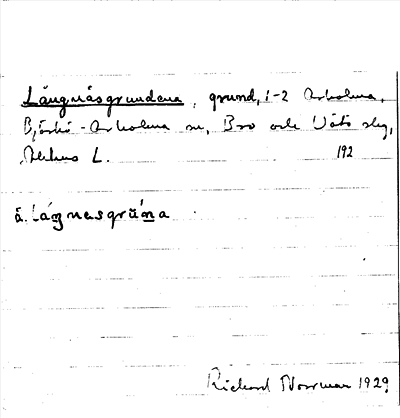 Långnäsgrundena, grund, i-2 Arholma,
Björkö-Arholma sn, Bro och Väts slg,
L. 192
å. Långnesgrŭ́na
Richard Norrman 1929